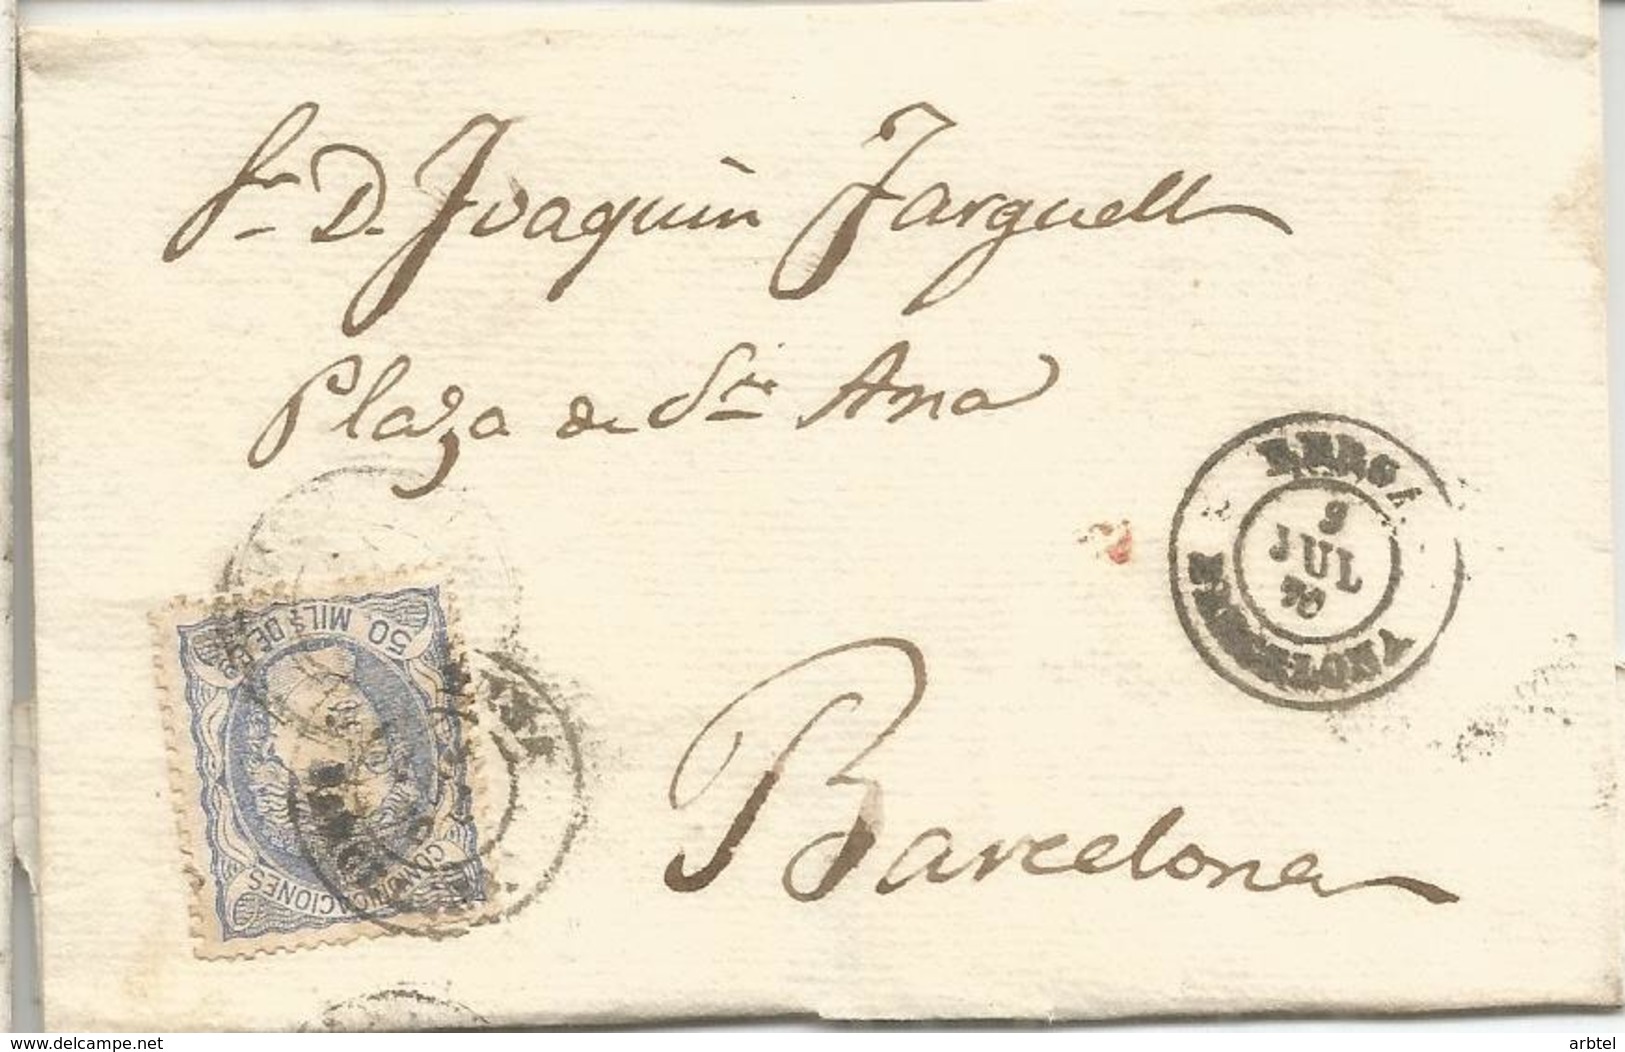 Sr. D. Joaquin Farguell
Plaza de Sta Ana
BERGA
9
JUL
70
BARCELONA
50 MILS DE
COMUNICACIONES
Barcelona
www.delcampe.net
arbtel